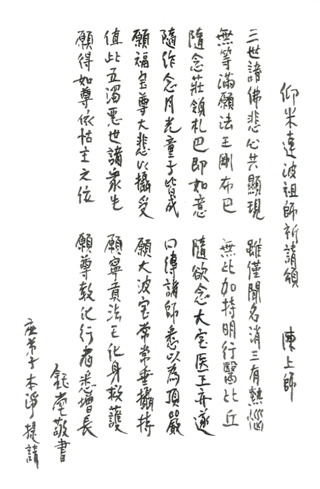 仰米達波祖師祈請頌 陳上師
三世諸佛悲心共顯現 雖僅聞名消三有熱惱
無等滿願法王剛布巴 無比加持明行醫比丘
隨念莊領札巴即如意 隨欲念大宝医王亦遂
隨作念月光童子皆成 口傳諸師悉以為頂嚴
願福宝尊大悲以攝受 願大波宝常常垂攝持
值此五濁惡世諸眾生 願寧貢法王化身救護
願得如尊依怙主之位 願尊教化行者悉增長
堂敬書
弟子本淨提請